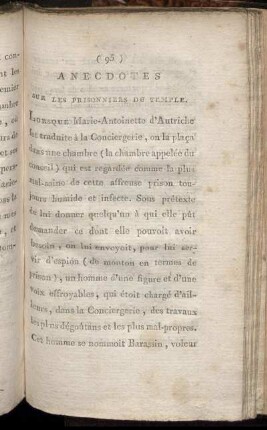 ( 95 )
ANECDOTES
SUR LES PRISONNIERS DU TEMPLE.
LORSQUE Marie-Antoinette d'Autriche
fut traduite à la Conciergerie, on la plaça
dans une chambre (la chambre appelée du
conseil) qui est regardée comme la plus
mal-saine de cette affreuse prison tou-
jours humide et infecte. Sous prétexte
de lui donner quelqu'un à qui elle pût
demander ce dont elle pouvoit avoir
besoin, on lui envoyoit, pour lui ser-
vir d'espion (de mouton en termes de
prison), un homme d'une figure et d'une
voix effroyables, qui étoit chargé d'ail-
leurs, dans la Conciergerie, des travaux
les plus dégoûtans et les plus mal-propres.
Cet homme se nommoit Barassin, voleur